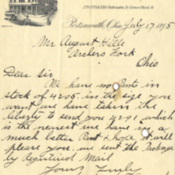 Portsmouth, Ohio July 17, 1895
Mr August Kille
Archers Fork
Ohio
Dear Sir
We have no Boots in
stock of 4205 in the size you
want we have taken the
liberty to send you 4291 which
is the nearest we have is a
much better Boot & look it will
please you, we sent the Package
by Registered Mail
Yours Truly